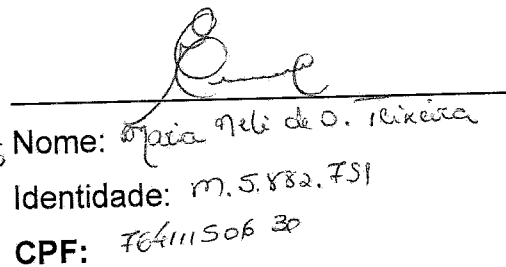 Nome: Maria Neli de O. Teixeira
Identidade: M.5.882.751
CPF: 764111506 30